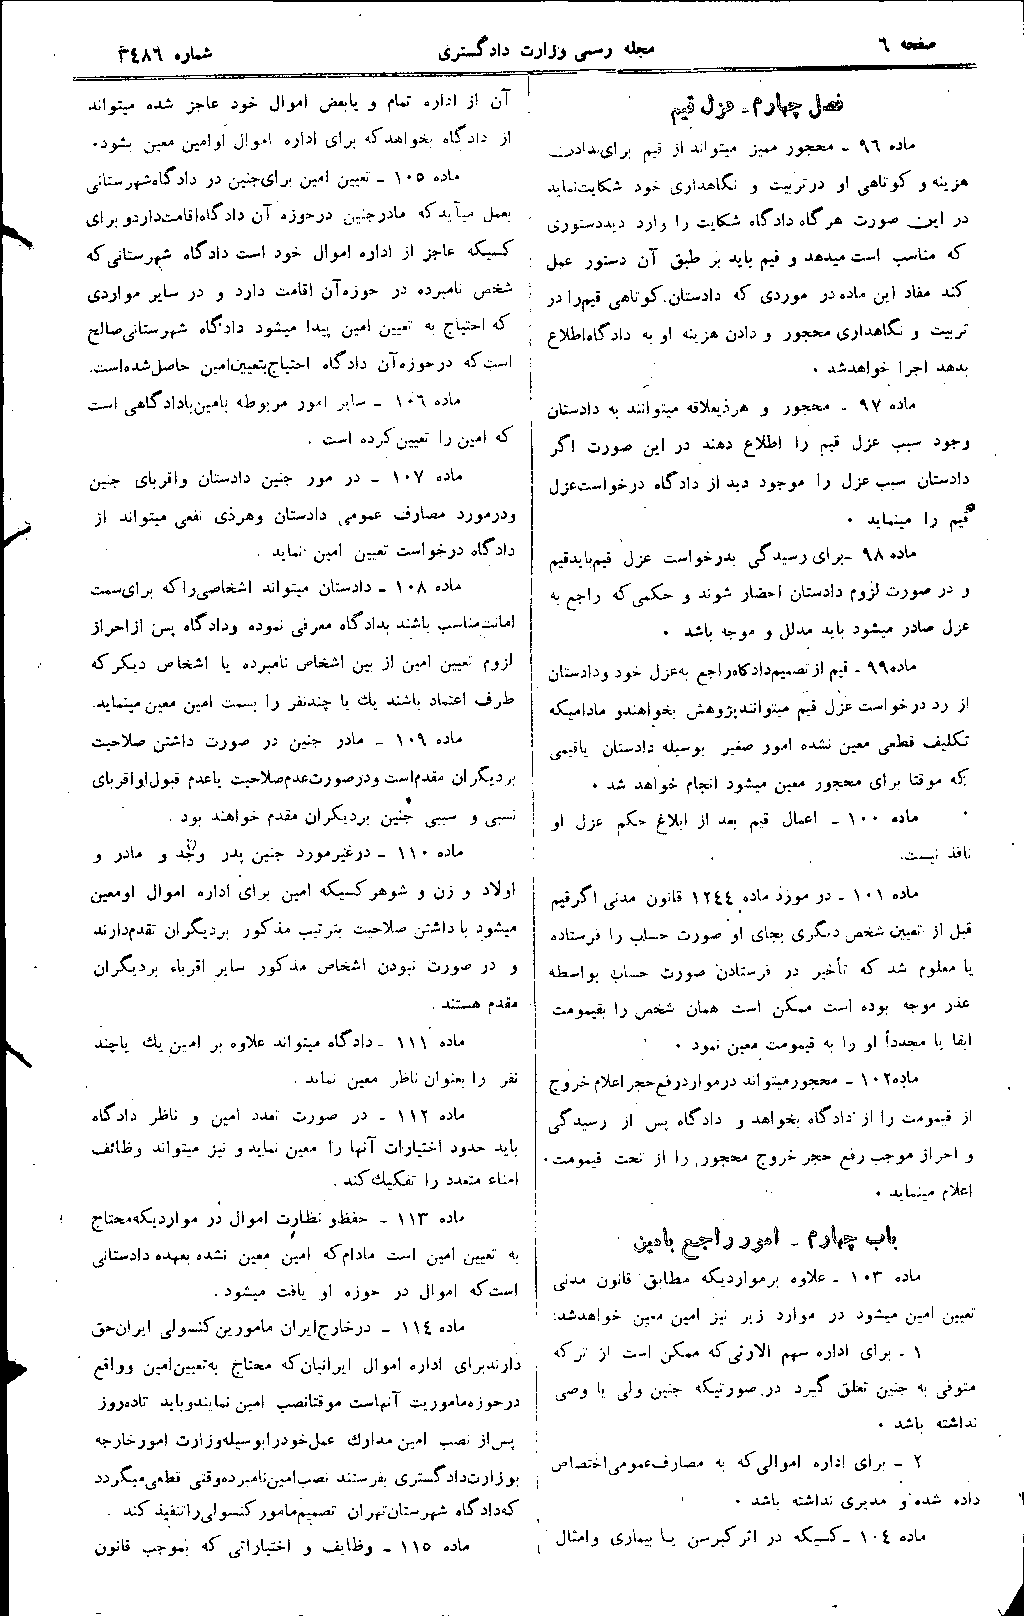 صفحه ٦
مجله رسمی وزارت دادگستری
شماره ٣٤٨٦
فصل چهارم - عزل قیم
ماده ٩٦ - محجور ممیز میتواند از قیم برای ندادن
هزینه و کوتاهی او در تربیت و نگاهداری خود شکایت نماید
در این صورت هر گاه دادگاه شکایت را وارد دید دستوری
که مناسب است میدهد و قیم باید بر طبق آن دستور عمل
کند مفاد این ماده در موردی که دادستان کوتاهی قیم را در
تربیت و نگاهداری محجور و دادن هزینه او به دادگاه اطلاع
بدهد اجرا خواهد شد .
ماده ٩٧ - محجور و هر ذیعلاقه میتوانند به دادستان
وجود سبب عزل قیم را اطلاع دهند در این صورت اگر
دادستان سبب عزل را موجود دید از دادگاه درخواست عزل
قیم را مینماید .
ماده ٩٨ - برای رسیدگی بدرخواست عزل قیم باید قیم
و در صورت لزوم دادستان احضار شوند و حکمی که راجع به
عزل صادر میشود باید مدلل و موجه باشد .
ماده ٩٩ - قیم از تصمیم دادگاه راجع به عزل خود و دادستان
از رد درخواست عزل قیم میتوانند پژوهش بخواهند و مادامیکه
تکلیف قطعی معین نشده امور صغیر بوسیله دادستان یا قیمی
که موقتا برای محجور معین میشود انجام خواهد شد .
ماده ١٠٠ - اعمال قیم بعد از ابلاغ حکم عزل او
نافذ نیست.
ماده ١٠١ - در مورد ماده ١٢٤٤ قانون مدنی اگر قیم
قبل از تعیین شخص دیگری بجای او صورت حساب را فرستاده
یا معلوم شد که تأخیر در فرستادن صورت حساب بواسطه
عذر موجه بوده است ممکن است همان شخص را بقیمومت
ابقا یا مجدداً او را به قیمومت معین نمود .
ماده ١٠٢ - محجور میتواند در موارد رفع حجر اعلام خروج
از قیمومت را از دادگاه بخواهد و دادگاه پس از رسیدگی
و احراز موجب رفع حجر خروج محجور را از تحت قیمومت
اعلام مینماید .
باب چهارم - امور راجع بامین
ماده ١٠٣ - علاوه بر مواردیکه مطابق قانون مدنی
تعیین امین میشود در موارد زیر نیز امین معین خواهد شد:
١ - برای اداره سهم الارثی که ممکن است از ترکه
متوفی به جنین تعلق گیرد در صورتیکه جنین ولی یا وصی
نداشته باشد .
٢ - برای اداره اموالی که به مصارف عمومی اختصاص
داده شده و مدیری نداشته باشد .
ماده ١٠٤ - کسیکه در اثر کبر سن یا بیماری و امثال
آن از اداره تمام و یا بعض اموال خود عاجز شده میتواند
از دادگاه بخواهد که برای اداره اموال او امین معین بشود.
ماده ١٠٥ - تعیین امین برای جنین در دادگاه شهرستانی
بعمل میآید که مادر جنین در حوزه آن دادگاه اقامت دارد و برای
کسیکه عاجز از اداره اموال خود است دادگاه شهرستانی که
شخص نامبرده در حوزه آن اقامت دارد و در سایر مواردی
که احتیاج به تعیین امین پیدا میشود دادگاه شهرستانی صالح
است که در حوزه آن دادگاه احتیاج بتعیین امین حاصل شده است.
ماده ١٠٦ - سایر امور مربوطه بامین با دادگاهی است
که امین را تعیین کرده است .
ماده ١٠٧ - در مور جنین دادستان و اقربای جنین
و در مورد مصارف عمومی دادستان و هر ذی نفعی میتواند از
دادگاه درخواست تعیین امین نماید .
ماده ١٠٨ - دادستان میتواند اشخاصی را که برای سمت
امانت مناسب باشند بدادگاه معرفی نموده و دادگاه پس از احراز
لزوم تعیین امین از بین اشخاص نامبرده یا اشخاص دیگر که
طرف اعتماد باشند یك یا چند نفر را بسمت امین معین مینماید.
ماده ١٠٩ - مادر جنین در صورت داشتن صلاحیت
بر دیگران مقدم است و در صورت عدم صلاحیت یا عدم قبول او اقربای
نسبی و سببی جنین بر دیگران مقدم خواهند بود .
ماده ١١٠ - در غیر مورد جنین پدر و جد و مادر و
اولاد و زن و شوهر کسیکه امین برای اداره اموال او معین
میشود با داشتن صلاحیت بترتیب مذکور بر دیگران تقدم دارند
و در صورت نبودن اشخاص مذکور سایر اقرباء بر دیگران
مقدم هستند .
ماده ١١١ - دادگاه میتواند علاوه بر امین یك یا چند
نفر را بعنوان ناظر معین نماید .
ماده ١١٢ - در صورت تعدد امین و ناظر دادگاه
باید حدود اختیارات آنها را معین نماید و نیز میتواند وظائف
امناء متعدد را تفکیك کند .
ماده ١١٣ - حفظ و نظارت اموال در مواردیکه محتاج
به تعیین امین است مادام که امین معین نشده بعهده دادستانی
است که اموال در حوزه او یافت میشود .
ماده ١١٤ - در خارج ایران مامورین کنسولی ایران حق
دارند برای اداره اموال ایرانیان که محتاج به تعیین امین و واقع
در حوزه ماموریت آنهاست موقتا نصب امین نمایند و باید تا ده روز
پس از نصب امین مدارك عمل خود را بوسیله وزارت امور خارجه
بوزارت دادگستری بفرستند نصب امین نامبرده وقتی قطعی میگردد
که دادگاه شهرستان تهران تصمیم مامور کنسولی را تنفیذ کند .
ماده ١١٥ - وظایف و اختیاراتی که بموجب قانون